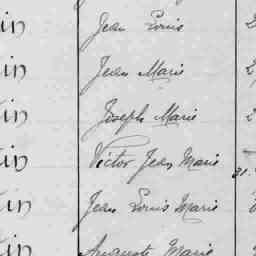 in Jean Louis 2
in Jean Marie 2
in Joseph Marie 2
in Victor Jean Marie
in Jean Louis Marie
in Auguste Marie